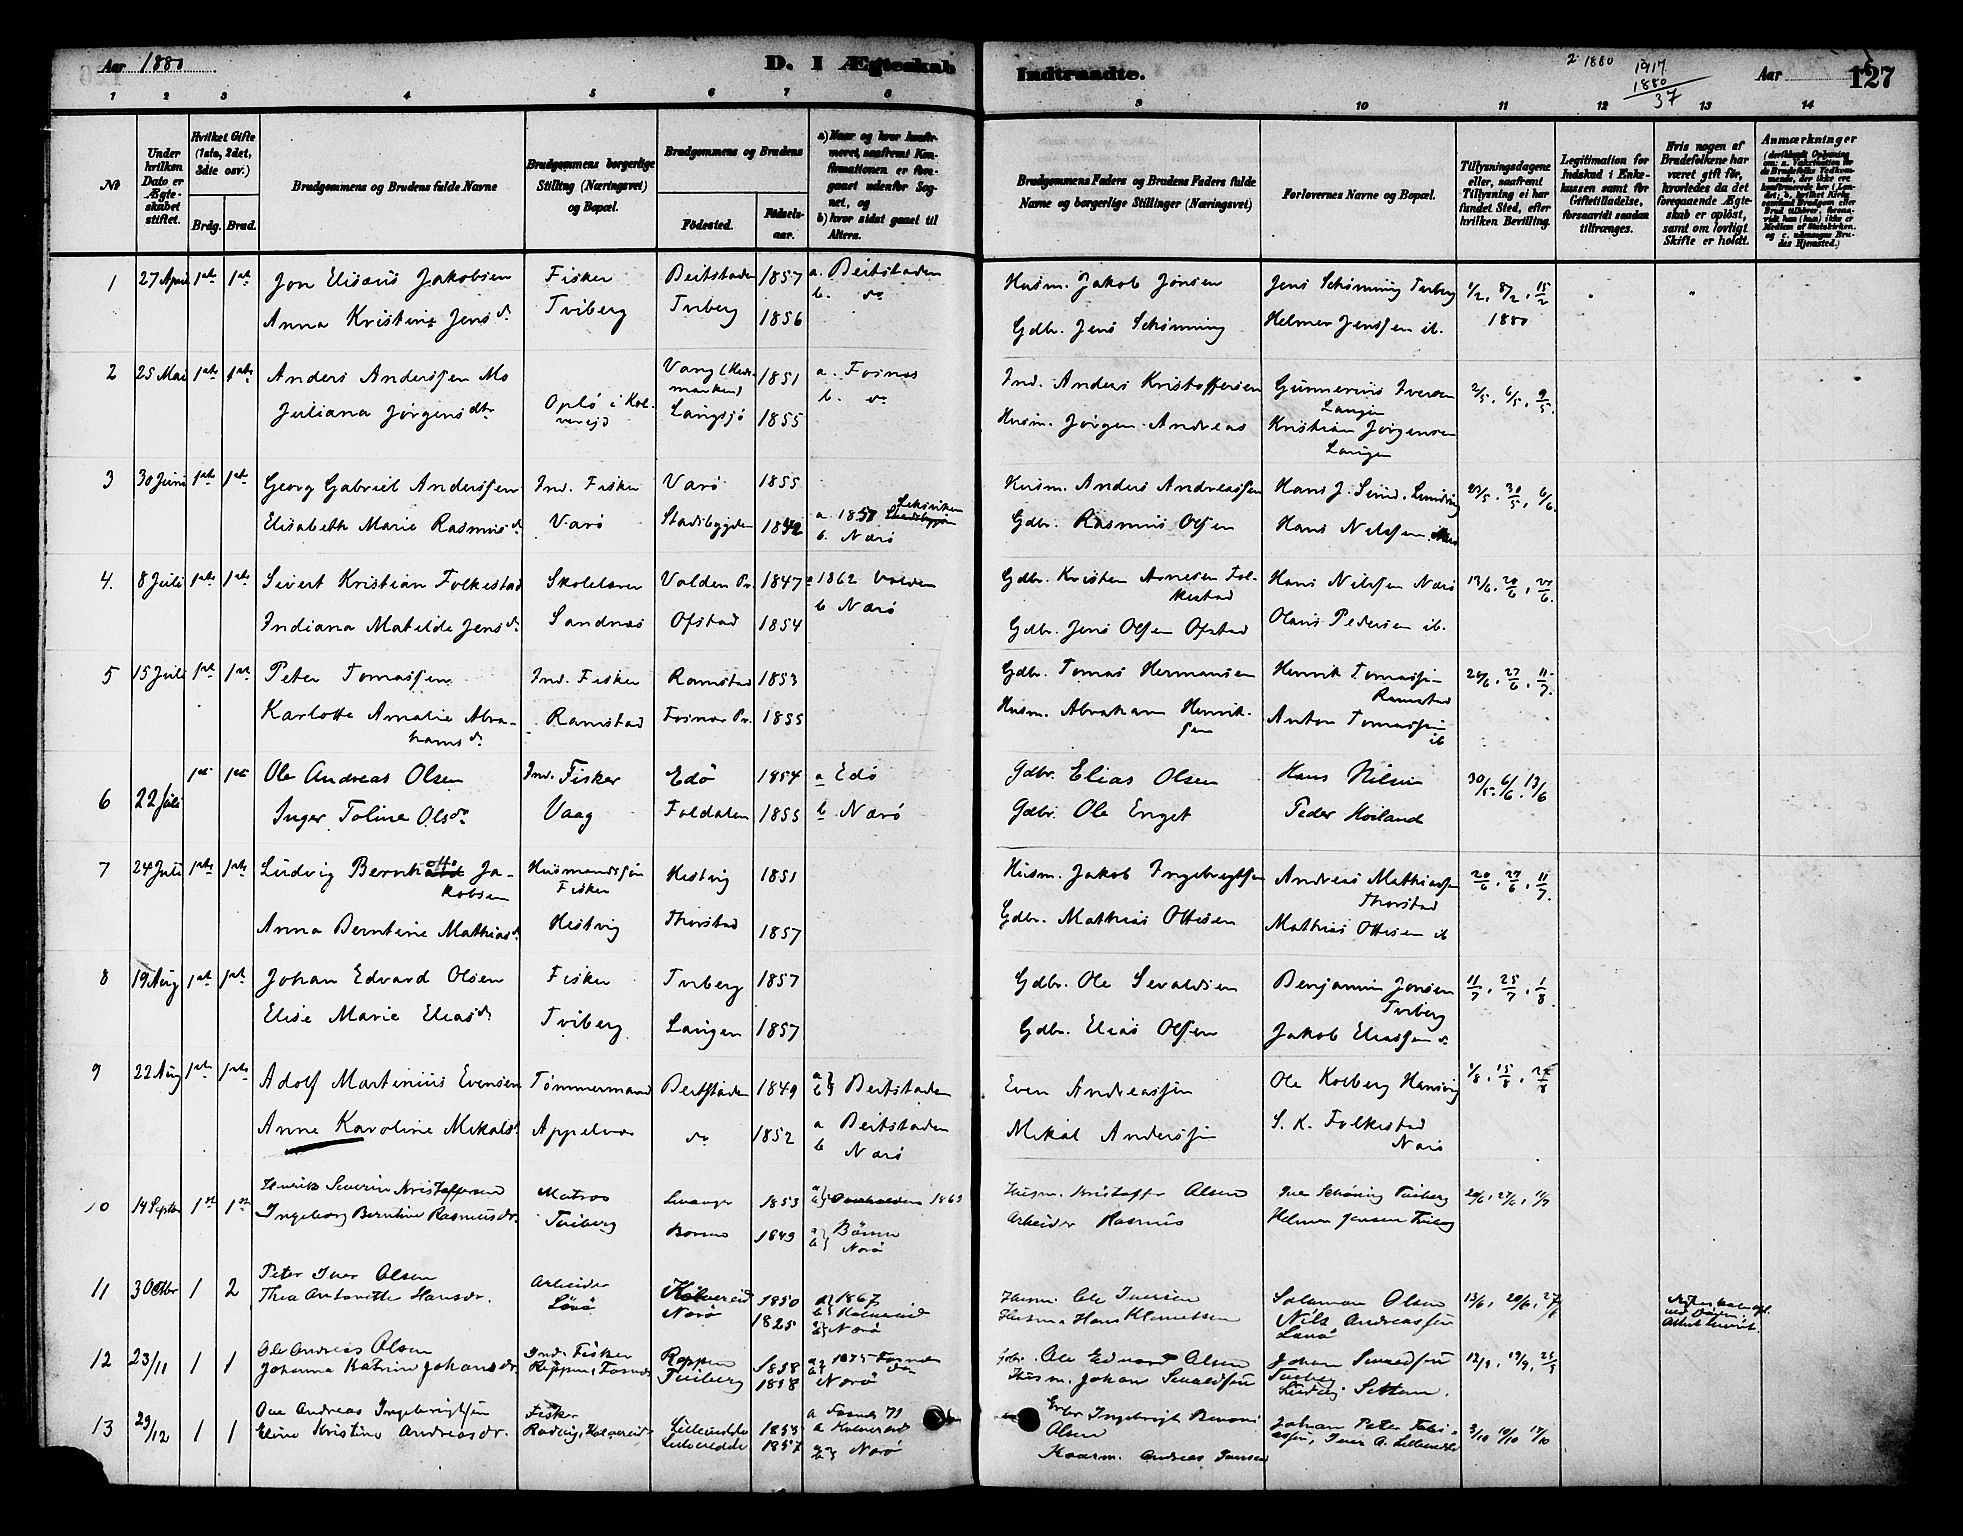 Aar 1880
D. I Ægteskab Indtraadte.
2 1880
1917
1880
37
Aar
127
1 2 3 4 5 6 7 8 9 10 11 12 13 14
No
Under hvilken Dato er Ægteskabet stiftet.
Hvilket Gifte (1ste, 2det, 3die osv.)
Brdg. Brud.
Brudgommens og Brudens fulde Navne
Brudgommens borgerlige Stilling (Næringsvei) og Bopæl.
Brudgommens og Brudens
Fødested. Fødselsaar.
a) Naar og hvor konfirmeret, saafremt Konfirmationen er foregaaet udenfor Sognet, og
b) hvor sidst gaaet til Alters.
Brudgommens Faders og Brudens Faders fulde Navne og borgerlige Stillinger (Næringsvei)
Forlovernes Navne og Bopæl.
Tillysningsdagene eller, saafremt Tillysning ei har fundet Sted, efter hvilken Bevilling.
Legitimation for Indskud i Enkekassen samt for Giftetilladelse, forsaavidt saadan tiltrænges.
Hvis nogen af Brudefolkene har været gift før, hvorledes da det foregaaende Ægteskab er opløst, samt om lovligt Skifte er holdt.
Anmærkninger
1 27 April 1ste 1ste Jon Elisæus Jakobsen Fisker Beitstaden 1857 a. Beitstaden Husm. Jakob Jonsen Jens Schønning Tviberg 1/2, 8/2, 15/2
Anna Kristine Jensd. Tviberg Tviberg 1856 b. do Gdbr. Jens Schønning Helmer Jenssen ib. 1880
2 25 Mai 1ste 1ste Anders Anderssen Mo Vang (Hedemarken) 1851 a. Fosnes Ind. Anders Kristoffersen Gunnerius Iversen Langen 2/5, 6/5, 9/5
Juliana Jørgensdtr Oplø i Kolvereid Langsjø 1855 b. do Husm. Jørgen Andreas Kristian Jørgensen Langen
3 30 Juni 1ste 1ste Georg Gabriel Anderssen Ind. Fisker Varø 1855 Husm. Anders Andreassen Hans J. Sund. 23/5, 30/5, 6/6.
Elisabeth Marie Rasmusd. Varø Stadsbygden 1842 a 1857 Leksviken b. Nærø Gdbr. Rasmus Olsen Hans Nilssen Nærø
4. 8 Juli 1ste 1ste Sivert Kristian Folkestad Skolelærer Volden Pr. 1847 a 1862 Volden Gdbr. Kristen Folkestad Hans Nilssen Nærø 13/6, 20/6, 27/6.
Indiana Matilde Jensd. Sandnes Ofstad 1854 b Nærø Gdbr. Jens Olsen Ofstad Olaus Pedersen ib.
5 15 Juli 1ste 1ste Peter Tomassen Ind. Fisker Ramstad 1853 Gdbr. Tomas Hermansen Henrik Tomassen Ramstad 20/6, 27/6, 11/7.
Karlotte Amalie Abrahamsd. Ramstad Fosnes Pr. 1855 Husm. Abraham Henriksen Anton Tomassen ib
6 22 Juli 1ste 1ste Ole Andreas Olsen Ind. Fisker Edø 1854 a Edø Gdbr. Elias Olsen Hans Nilsen 30/5, 6/6, 13/6
Inger Toline Olsdr Vaag Foldalen 1855 b Nærø Gdbr. Ole Enget Peder Høiland
7 24 Juli 1ste 1ste Ludvig Bernhoff Jakobsen Husmandssøn Fisker Hestvig 1851 Husm. Jakob Ingebrigtsen Andreas Mathiassen Thorstad 20/6, 27/6, 11/7.
Anna Berntine Mathiasd. Hestvig Thorstad 1857 Gdbr. Mathias Ottesen Mathias Ottesen ib
8 19 Aug 1ste 1ste Johan Edvard Olsen Fisker Tviberg 1857 Gdbr. Ole Sevaldsen Benjamin Jonsen Tviberg 11/7, 25/7, 1/8.
Elise Marie Eliasd. Tviberg Langen 1857 Gdbr. Elias Olsen Jakob Eliassen do
9 22 Aug 1ste 1ste Adolf Martinius Evensen Tømmermand Beitstaden 1849 a} b} Beitstaden Even Andreassen Ole Kolberg 1/8, 15/8, 22/8
Anne Karoline Mikalsd. Appelvær do 1852 a Beitstaden b Nærø Mikal Anderssen S. K. Folkestad Nærø
10 14 Septbr 1ste 1ste Henrik Severin Kristoffersen Matros Levanger 1853 a} b} Overhalden 1869 Husm. Kristoffer Olsen Iver Schøning Tviberg 20/6, 27/6, 11/7
Ingeborg Berntine Rasmusdr. Tviberg 1849 Nærø Arbeider Rasmus Helmer Jensen Tviberg
11 3 Octbr 1 2 Peter Iver Olsen Arbeider Kolvereid 1850 1867 Kolvereid Husm. Ole Iversen Salamon Olsen 13/6, 20/6, 27/6
Thea Antonette Hansdr. Løvø Nærø 1825 Nærø Husm. Hans Klemetsen Nils Andreassen Løvø
12 23/11 1 1 Ole Andreas Olsen Ind. Fisker Roppen 1858 a} 1875 Fosnes Gdbr. Ole Edvard Olsen Johan Sevaldsen Tviberg 12/9, 19/9, 26/9
Johanna Katrine Johansdr. Roppen, Fosnes Tviberg 1858 Nærø Husm. Johan Sevaldsen Ludvig Setten.
13 29/12 1 1 Ove Andreas Ingebrigtsen Fisker Lilleudde 1855 a Fosnes 71 Ingebrigt Olsen Johan Peter 3/10 10/10 17/10
Eline Kristine Andreasdr. Rødvig, Kolvereid 1857 a Kolvereid b Nærø Andreas